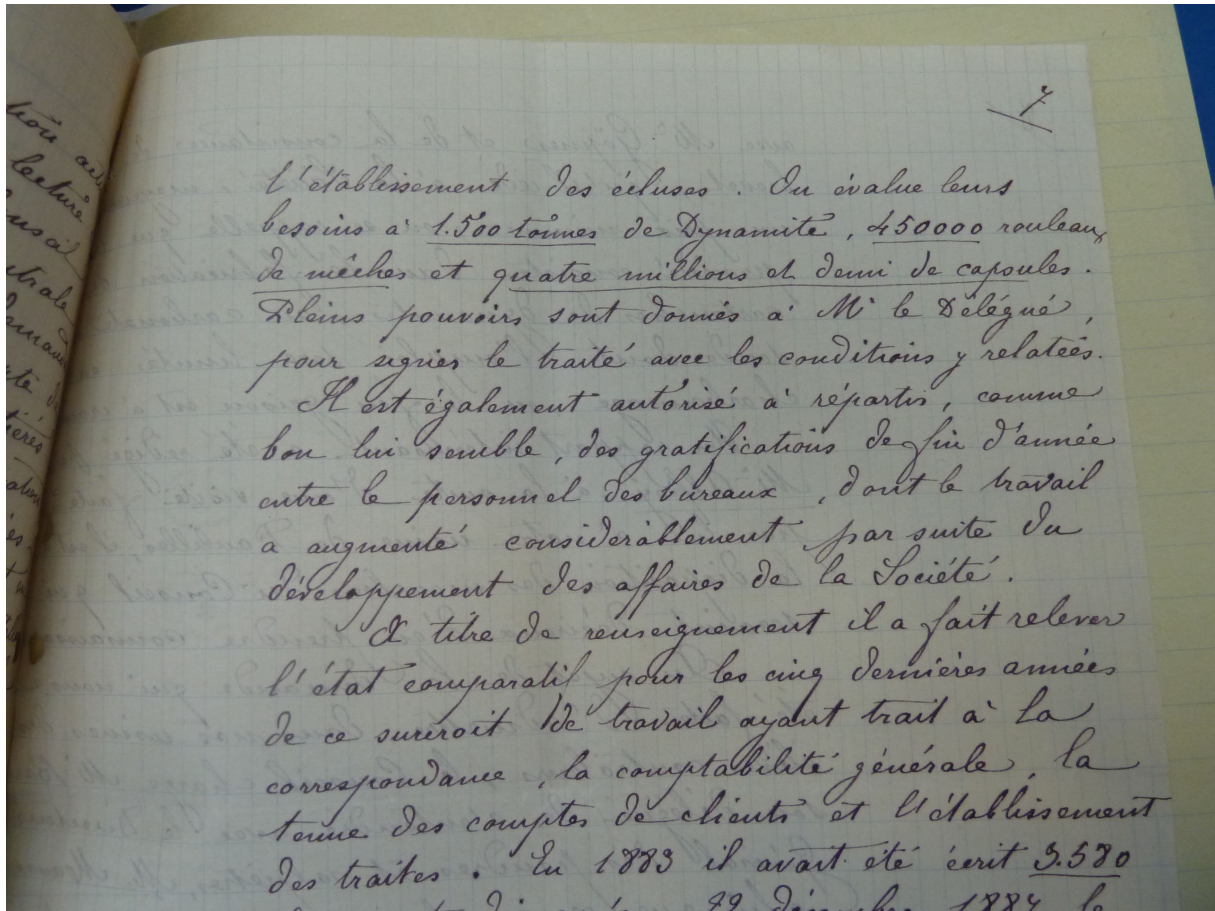 7
l'établissement des écluses. On évalue leurs
besoins à 1.500 tonnes de Dynamite, 450000 rouleaux
de mêches et quatre millions et demi de capsules.
Pleins pouvoirs sont donnés à Mr le Délégué,
pour signer le traité avec les conditions y relatées.
Il est également autorisé à répartir, comme
bon lui semble, des gratifications de fin d'année
entre le personnel des bureaux, dont le travail
a augmenté considérablement par suite du
développement des affaires de la Société.
A titre de renseignement il a fait relever
l'état comparatif pour les cinq dernières années
de ce surcroit de travail ayant trait à la
correspondance, la comptabilité générale, la
tenue des comptes de clients et l'établissement
des traites. En 1883 il avait été écrit 3.580
22 décembre 1884 le